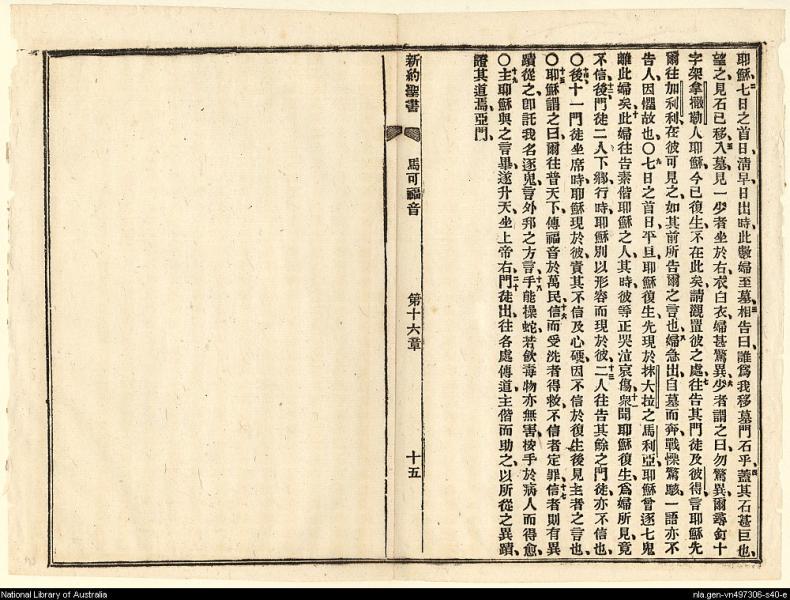 耶穌七日之首日清早日出時此數婦至墓相告曰誰爲我移墓門石乎蓋其石甚巨也
望之見石已移入墓見一少者坐於右衣白衣婦甚驚異少者謂之曰勿驚異爾尋釘十
字架拿撒勒人耶穌今已復生不在此矣請觀置彼之處往告其門徒及彼得言耶穌先
爾往加利利在彼可見之如其前所告爾之言也婦急出自墓而奔戰慄驚駭一語亦不
告人因懼故也〇七日之首日平旦耶穌復生先現於抹大拉之馬利亞耶穌曾逐七鬼
離此婦矣此婦往告素偕耶穌之人其時彼等正哭泣哀傷衆聞耶穌復生爲婦所見竟
不信後門徒二人下鄉行時耶穌別以形容而現於彼二人往告其餘之門徒亦不信也
〇後十一門徒坐席時耶穌現於彼責其不信及心硬因不信於復生後見主者之言也
〇耶穌謂之曰爾往普天下傳福音於萬民信而受洗者得救不信者定罪信者則有異
蹟從之卽託我名逐鬼言外邦之方言手能操蛇若飮毒物亦無害按手於病人而得愈
〇主耶穌與之言畢遂升天坐上帝右門徒出往各處傳道主偕而助之以所從之異蹟
證其道焉亞門
新約聖書 馬可福音 第十六章 十五
National Library of Australia
nla.gen-vn497306-s40-e